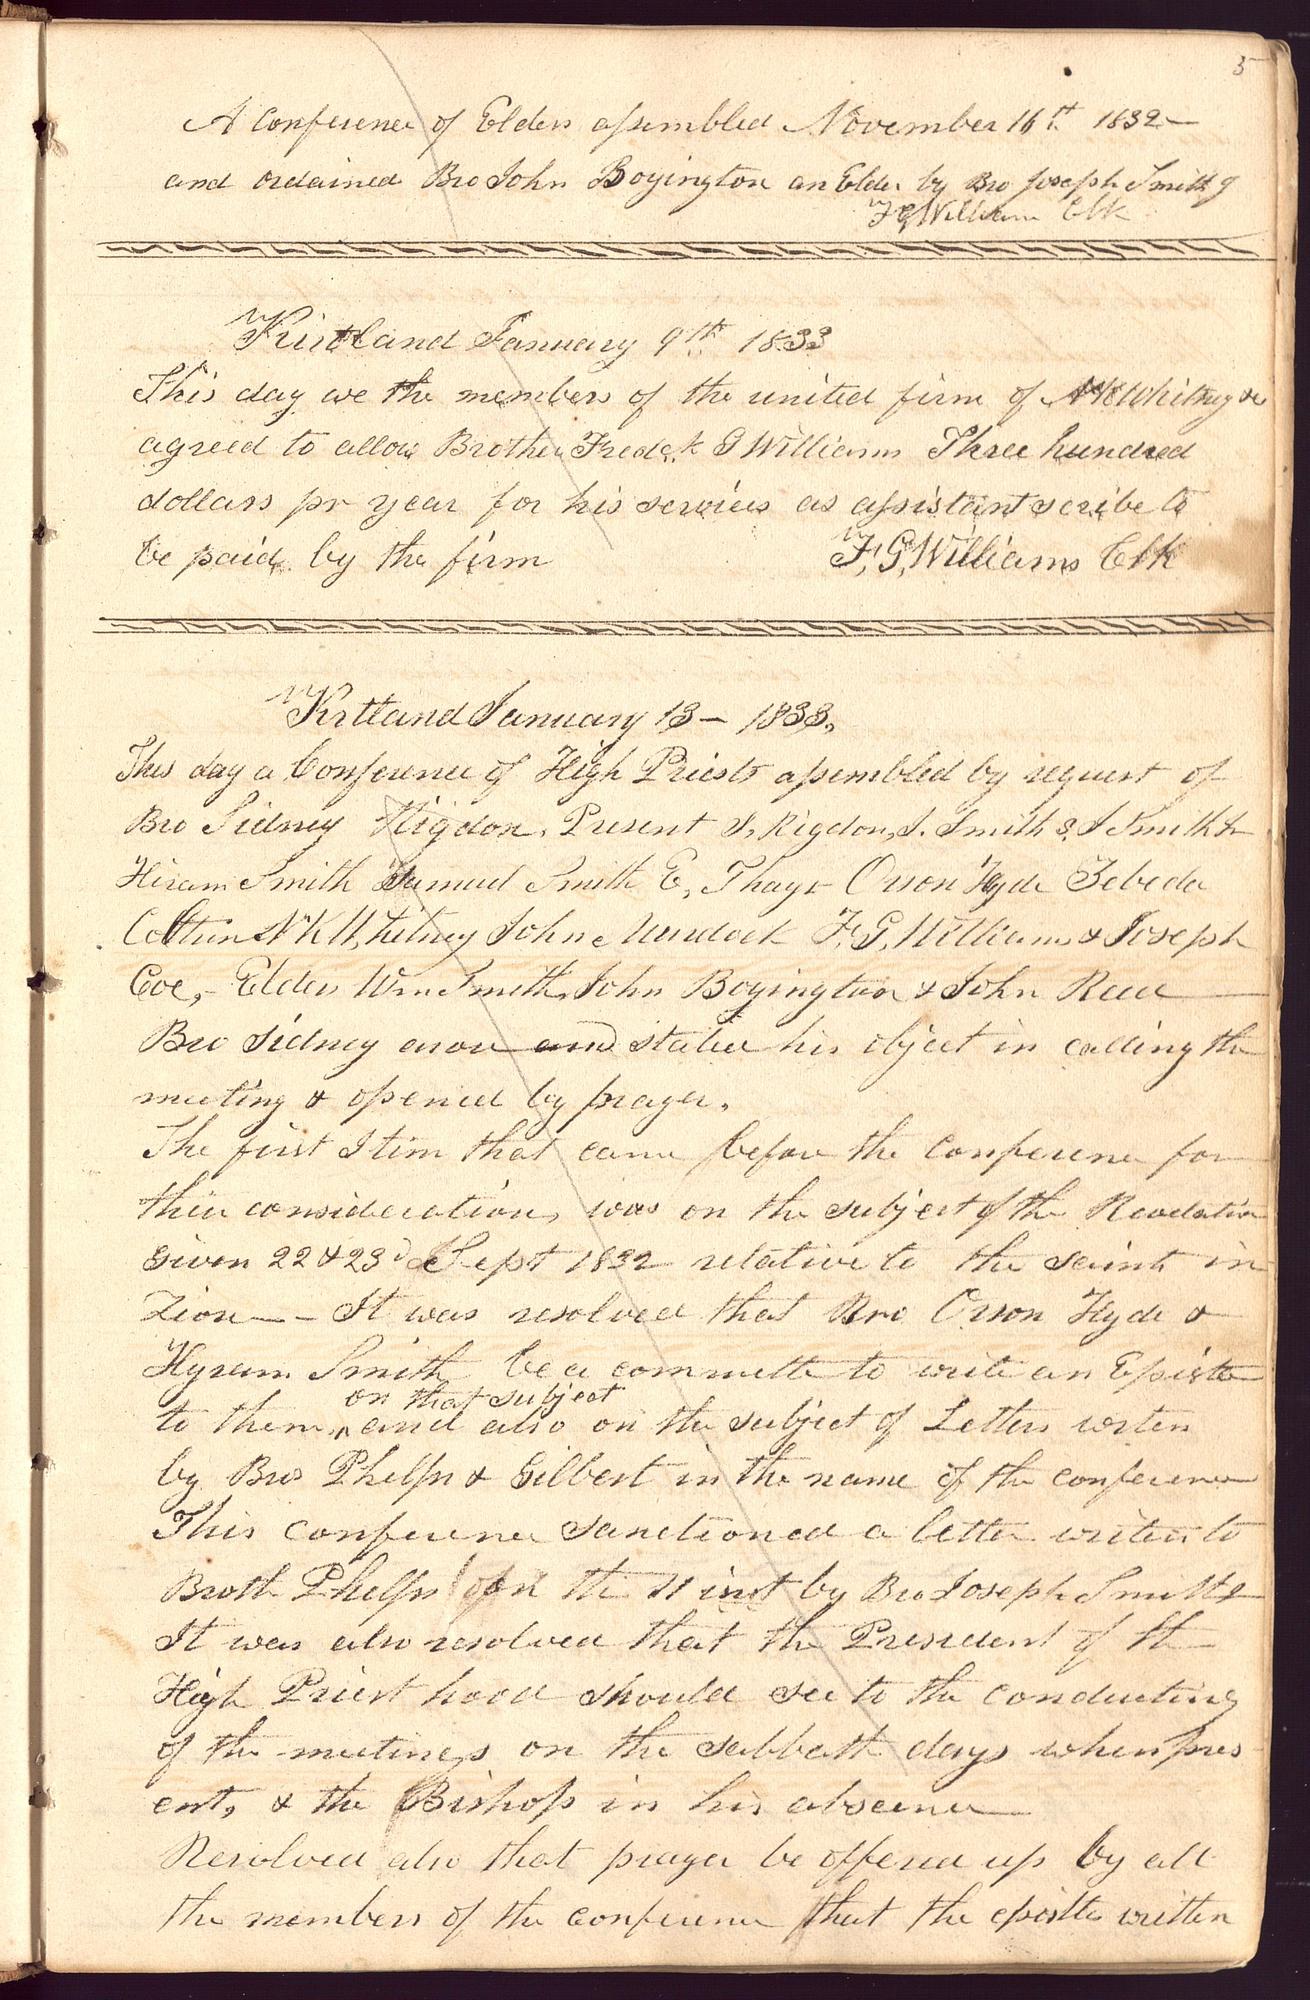 5
A Conference of Elders assembled November 16th 1832—
and ordained Bro John Boyington an Elder by Bro Joseph Smith J
F G William Clk
Kirtland January 9th 1833
This day we the members of the united firm of N K Whitney &
agreed to allow Brother Fredck G Williams Three hundred
dollars pr year for his services as assistant scribe to
be paid by the firm F, G, Williams Clk
Kirtland January 13— 1833,
This day a Conference of High Priests assembled by request of
Bro Sidney Rigdon, Present S, Rigdon, J. Smith S. J Smith Jr
Hiram Smith Samuel Smith E, Thayr Orson Hyde Zebede
Coltrin N K Whitney John Murdock F, G, Williams & Joseph
Coe,- Elders Wm Smith, John Boyington & John Reed
Bro Sidney arose and stated his object in calling the
meeting & opened by prayer,
The first Item that came before the Conference for
their consideration, was on the subject of the Revelation
given 22 & 23d Sept 1832 relative to the saints in
Zion—— It was resolved that Bro Orson Hyde &
Hyram Smith be a committe to write an Epistle
on that subject
to them, ^ and also on the subject of Letters writen
by Bros Phelps & Gilbert in the name of the conference
This conference sanctioned a letter writen to
Broth Phelps on the 11 inst by Bro Joseph Smith
It was also resolved that the President of the
High Priest hood should see to the conducting
of the meetings on the sabbath days when pres
ent, & the Bishop in his absence—
Resolved also that prayer be offered up by all
the members of the conference that the epistle written